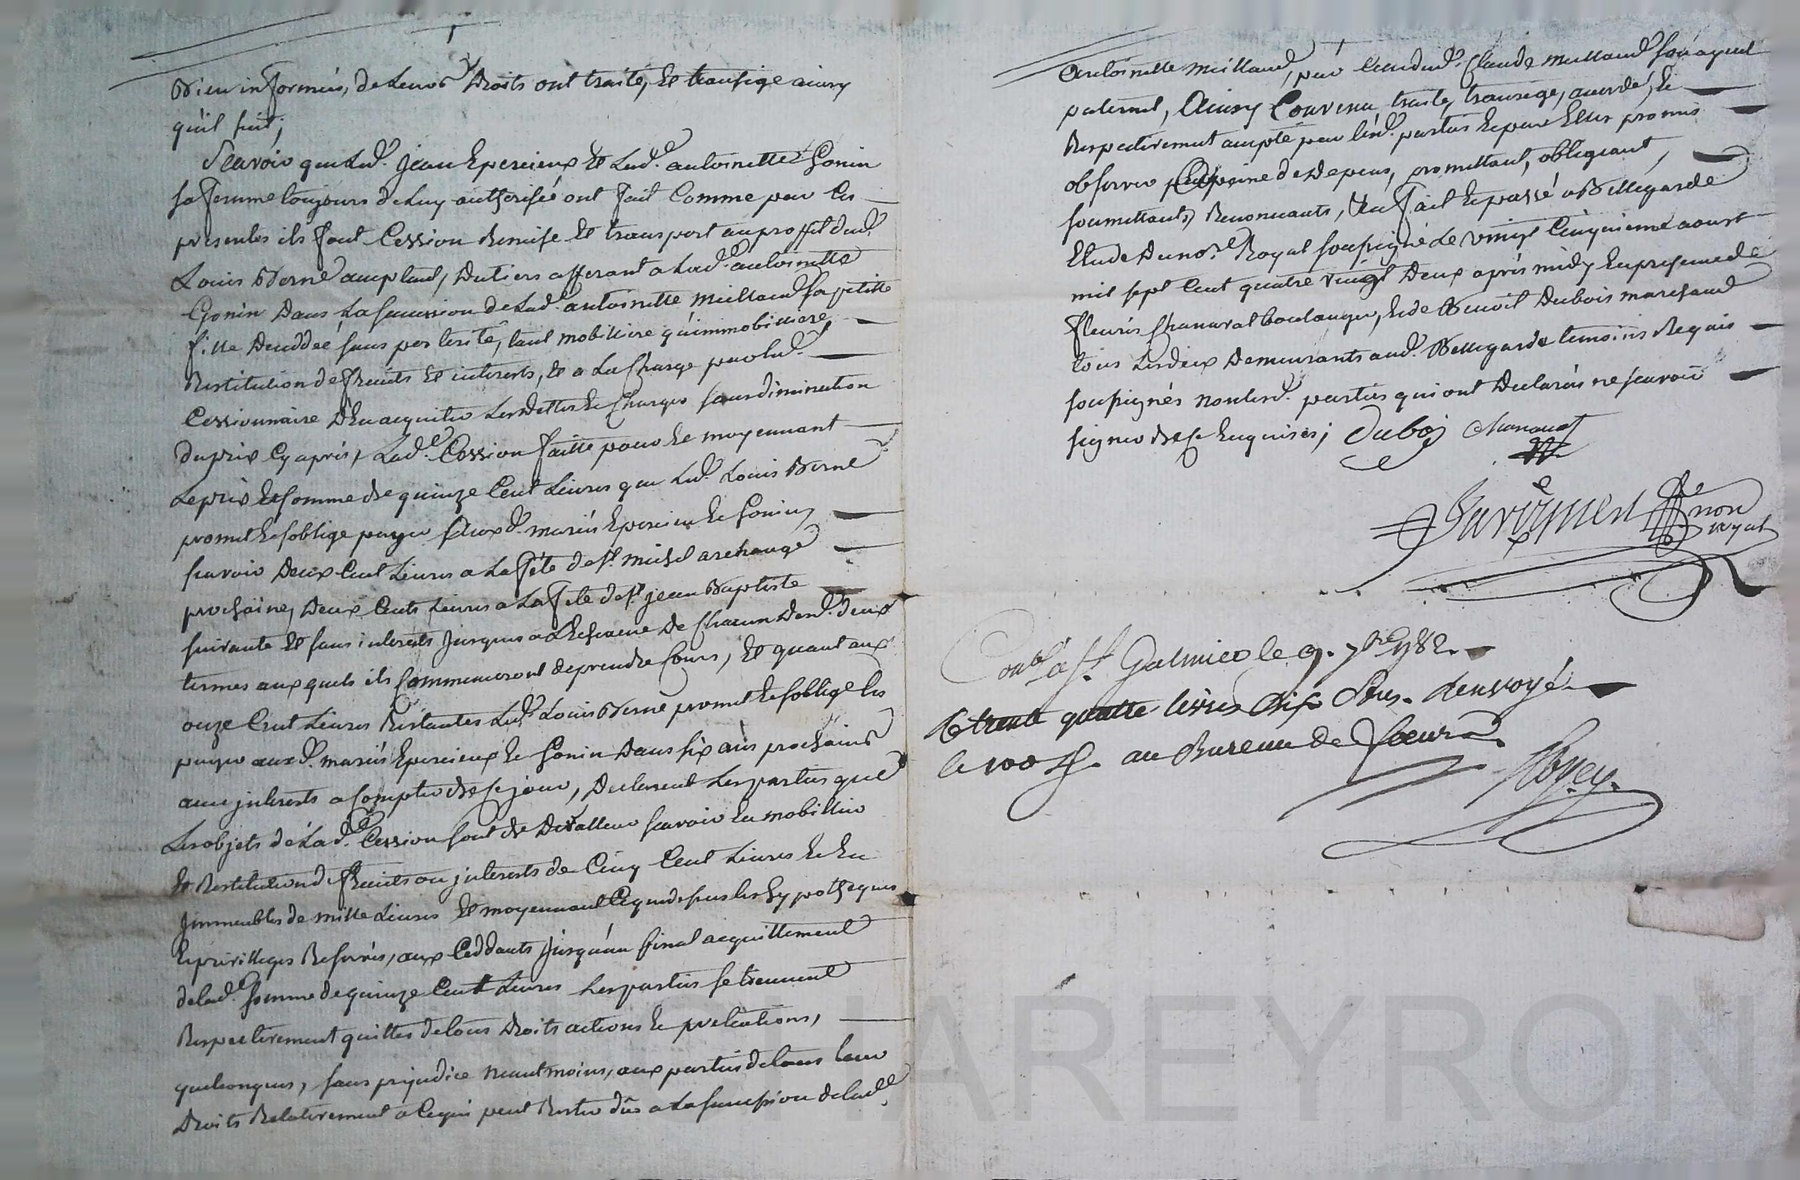 Bien informés, de Leurs Droits ont traité, et transigé ainsy
qu'il suit;
Scavoir que Lud.t Jean Epercieux et Lad.e antoinette Gonin
sa femme toujours de Luy authorisée ont fait Comme par Ces
presentes ils font Cession Remise et transport au proffit dud.t
Louis Berne acceptant, Du tiers afferant a Lad.e antoinette
Gonin Dans La succession de Lad.e antoinette Meilland sa petitte
fille Decedée sans posterité, tant mobiliaire qu'immobiliaire
Restitution de fruits et interests, et a La Charge par Led.t
Cessionnaire D'en acquitter Les dettes et Charges sans diminution
du prix Cy après, Lad.e Cession faitte pour et moyennant
Le prix et somme de quinze Cent Livres que Led.t Louis Berne
promet et s'oblige payer auxd.s mariés Epercieux et Gonin,
scavoir Deux Cent Livres a La fête de S.t michel archange
prochaine, Deux Cents Livres a La fete de S.t jean Baptiste
suivante et sans interests jusques a L'Escheance De Chacun Desd.s deux
termes auxquels ils Commenceront de prendre Cours, et quant aux
onze Cent Livres Restantes Led.t Louis Berne promet et s'oblige Les
payer auxd.s mariés Epercieux et Gonin Dans six ans prochains
avec jnterests a Compter de Ce jour, Declarent Les parties que
Les objets de Lad.e Cession sont de Valleur scavoir En mobilier
et Restitution de fruits ou jnterests de Cinq Cent Livres et En
jmmeubles de mille Livres et moyennant Ce que dessus Les hypotheques
et privilleges Reservés, aux Ceddants jusqu'au final acquittement
de Lad.e somme de quinze Cent Livres Les parties se tiennent
Respectivement quittes de tous Droits actions et pretentions,
quelconques, sans prejudice neantmoins, aux parties de tous leur
Droits Relativement a Ce qui peut Rester dûs a La succession de Lad.e
antoinette Meilland, par Claude Meilland son ayeul
paternel, Ainsy Convenu, traité, transigé, accordé, et
Respectivement accepté par Lesd. parties et par Elles promis
observer peine de Depens, promettant, obligeant,
soumettants, Renonçants, fait et passé a Bellegarde
Etude Du no.re Royal soussigné Le vingt Cinquieme aoust
mil sept Cent quatre vingt Deux après midy En presence de
fleuris Chanavat boulanger, et de Benoit Dubois marchand
tous Les deux Demeurants aud.t Bellegarde temoins Requis
soussignés non Lesd. parties qui ont Declarés ne scavoir
signer de Ce Enquises; Dubois Chanavat
no.re
royal
Con.lé a S.t Galmier le 9. 7bre 1782.
R trente quatre livres dix sous. renvoyé
le 100.e au Bureau de feurs.
HAREYRON